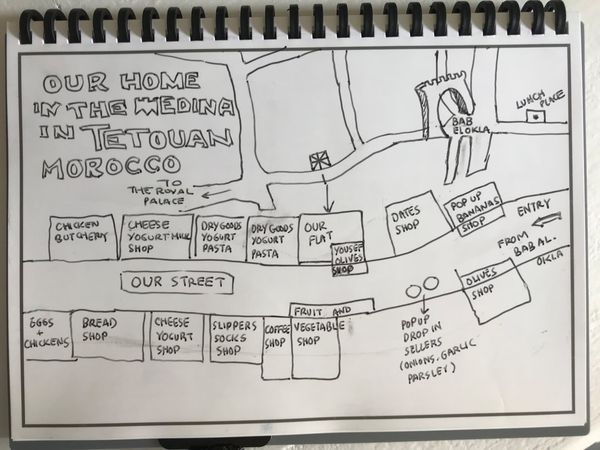 OUR HOME
IN THE MEDINA
IN TETOUAN
MOROCCO
TO
THE ROYAL
PALACE
BAB
ELOKLA
LUNCH
PLACE
CHICKEN
BUTCHERY
CHEESE
YOGURT MILK
SHOP
DRY GOODS
YOGURT
PASTA
DRY GOODS
YOGURT
PASTA
OUR
FLAT
YOUSEF
OLIVES
SHOP
DATES
SHOP
POP UP
BANANAS
SHOP
ENTRY
FROM
BAB AL.
OKLA
OUR STREET
OLIVES
SHOP
EGGS
+
CHICKENS
BREAD
SHOP
CHEESE
YOGURT
SHOP
SLIPPERS
SOCKS
SHOP
COFFEE
SHOP
FRUIT AND
VEGETABLE
SHOP
POPUP
DROP IN
SELLERS
(ONIONS, GARLIC
PARSLEY)